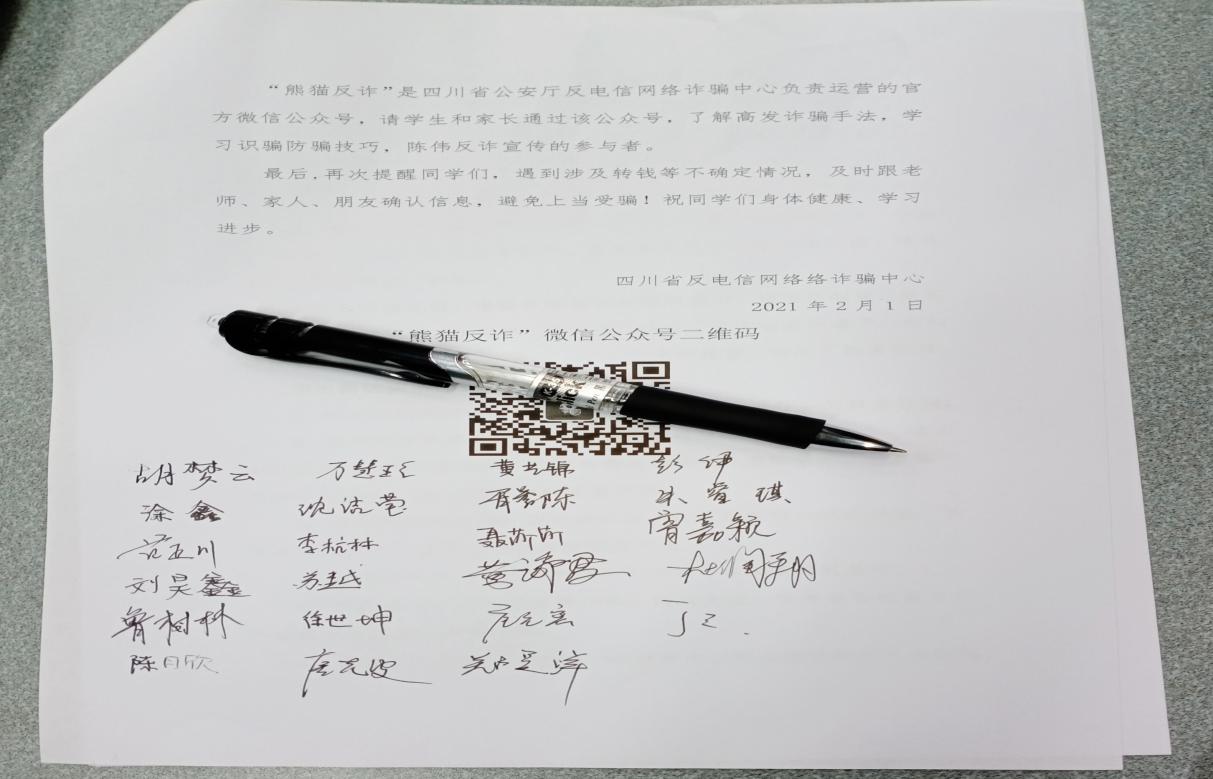 “熊猫反诈”是四川省公安厅反电信网络诈骗中心负责运营的官
方微信公众号，请学生和家长通过该公众号，了解高发诈骗手法，学
习识骗防骗技巧，陈伟反诈宣传的参与者。
最后，再次提醒同学们，遇到涉及转钱等不确定情况，及时跟老
师、家人、朋友确认信息，避免上当受骗！祝同学们身体健康、学习
进步。
四川省反电信网络络诈骗中心
2021 年 2 月 1 日
“熊猫反诈”微信公众号二维码
胡梦云
涂鑫 沈洁莹
李杭林 宵嘉颖
刘昊鑫 苏越
鲁树林 徐世坤
陈月欣